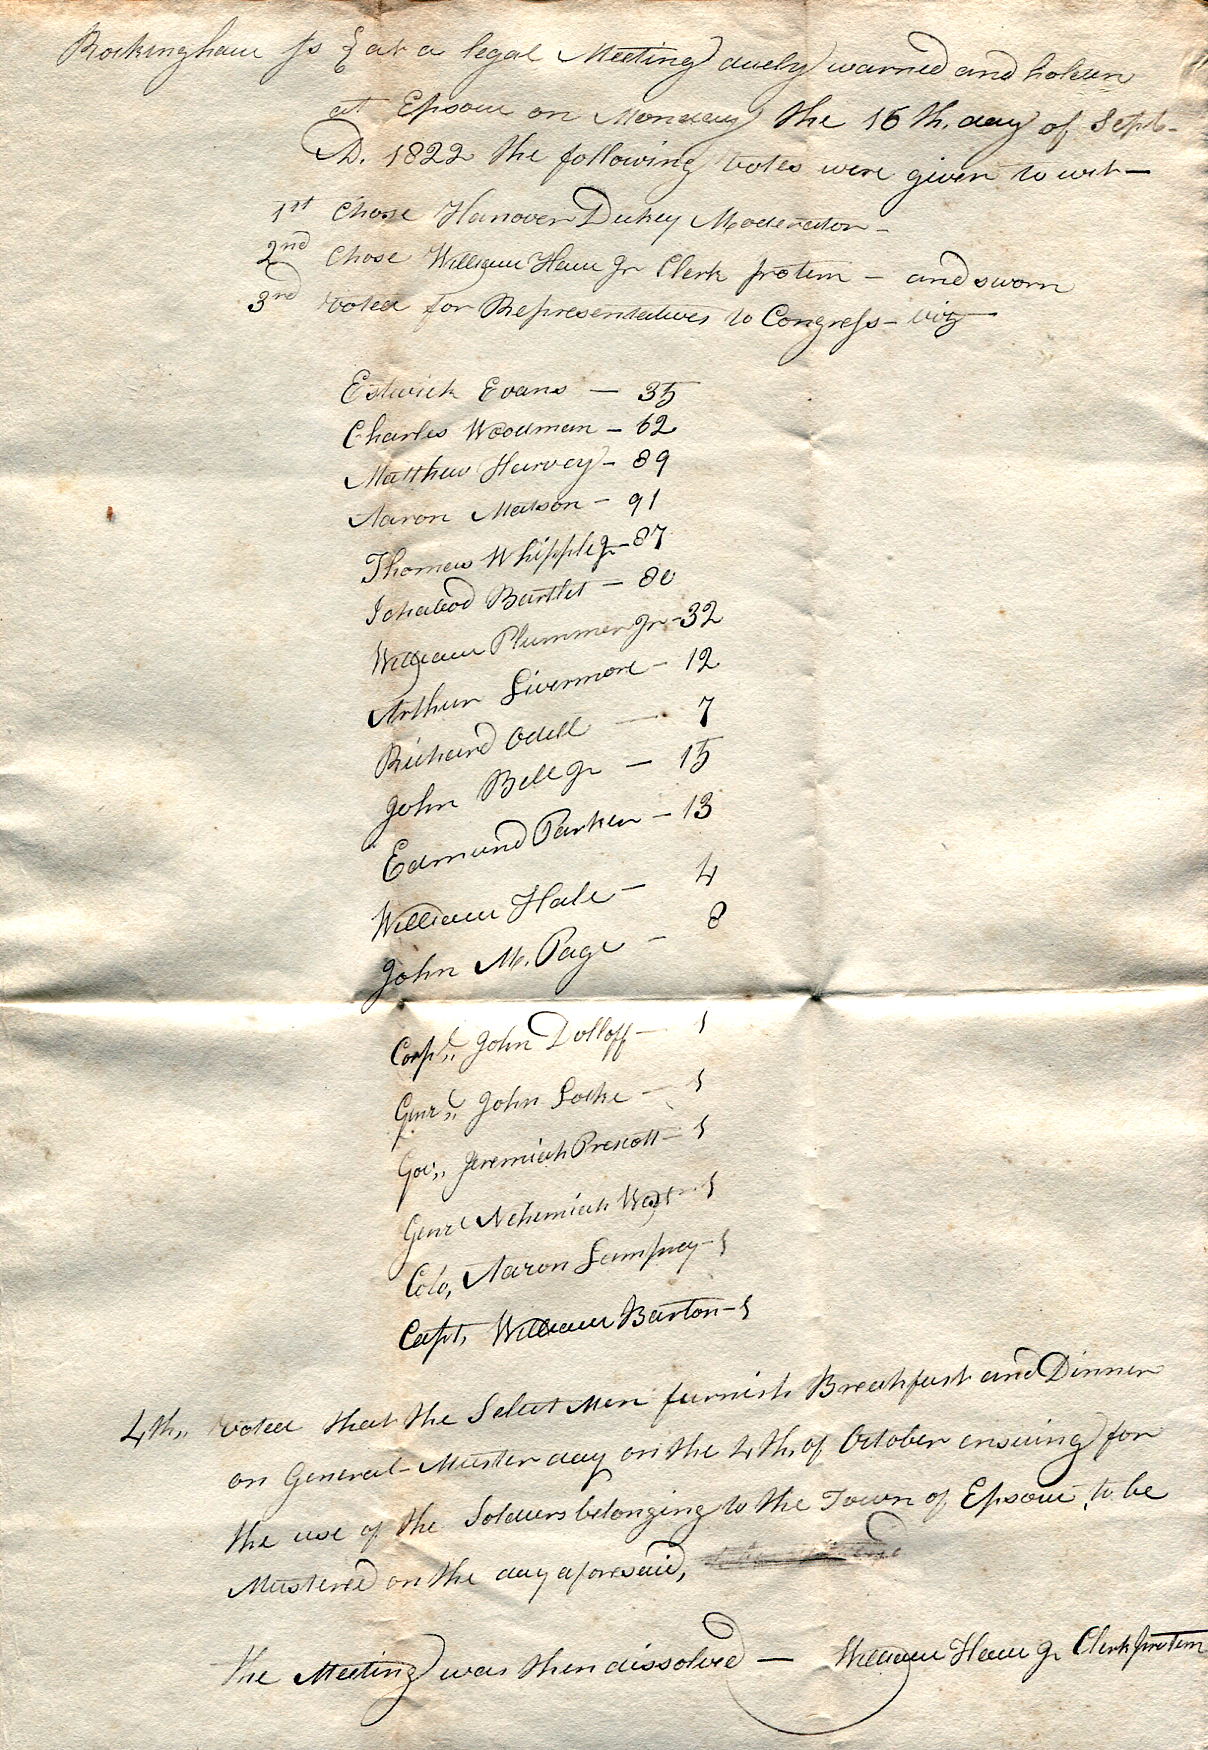 Rockingham Ss } at a legal Meeting duely warned and holden
at Epsom on Monday the 16th. day of Sept-
AD. 1822 the following votes were given to wit—
1st Chose Hanover Dickey Moderator-
2nd Chose William Ham Jr Clerk protem - and sworn
3rd voted for Representatives to Congress- viz—
Estwick Evans — 35
Charles Woodman - 62
Matthew Harvey - 89
Aaron Matson - 91
Thomas Whipple Jr - 87
Ichabod Bartlet - 80
William Plummer Jr - 32
Arthur Livermore - 12
Richard Odell — 7
John Bell Jr — 15
Edmund Parker — 13
William Hale — 4
John M. Page — 8
Corpl,, John Dolloff — 1
Genrl,, John Locke — 1
Gov,, Jeremiah Prescott — 1
Genrl Nehemiah - 1
Colo, Aaron Lampney - 1
Capt, William Barton - 1
4th,, voted that the Select Men furnish Breakfast and Dinner
on General-Muster day on the 4th, of October ensuing for
the use of the Soldiers belonging to the Town of Epsom, to be
Mustered on the day aforesaid,
The Meeting was then dissolved — William Ham Jr Clerk protem